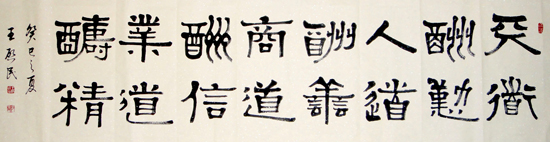 天衜
酬勤
人道
酬善
商道
酬信
業道
醻精
癸巳之夏
王民